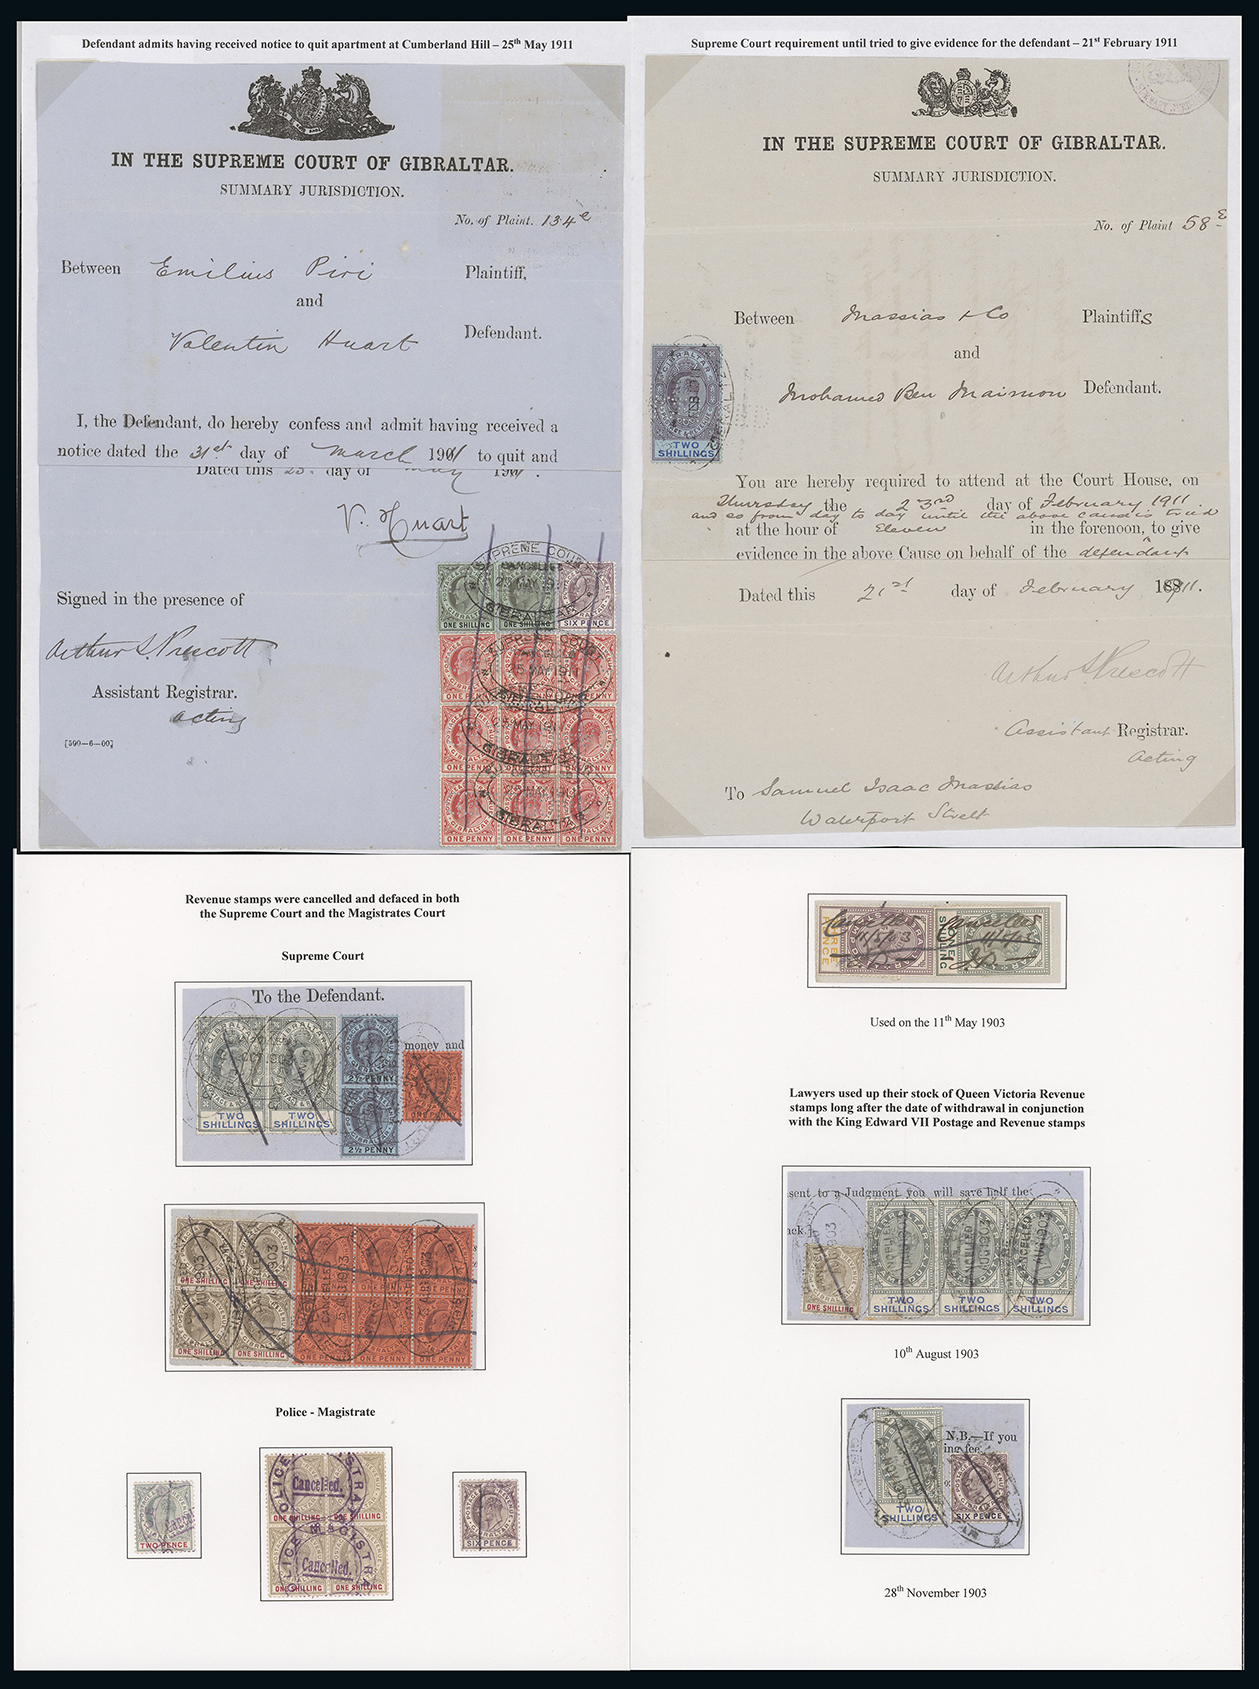 Defendant admits having received notice to quit apartment at Cumberland Hill – 25th May 1911
IN THE SUPREME COURT OF GIBRALTAR.
SUMMARY JURISDICTION.
No. of Plaint. 134e
Between Emilius Piri Plaintiff,
and
Valentin Huart Defendant.
I, the Defendant, do hereby confess and admit having received a
notice dated the 31st day of March 1901 to quit and
Dated this 25 day of May 1901.
V. Huart
Signed in the presence of
Arthur S. Prescott
Assistant Registrar.
acting
[500—6—00]
SUPREME COURT
CANCELLED
GIBRALTAR
ONE SHILLING
ONE SHILLING
SIX PENCE
ONE PENNY
ONE PENNY
ONE PENNY
ONE PENNY
ONE PENNY
ONE PENNY
ONE PENNY
ONE PENNY
ONE PENNY
Supreme Court requirement until tried to give evidence for the defendant – 21st February 1911
IN THE SUPREME COURT OF GIBRALTAR.
SUMMARY JURISDICTION.
No. of Plaint 58E
Between Massias & Co Plaintiffs
and
Mohamed Ben Maimon Defendant.
GIBRALTAR
TWO
SHILLINGS
You are hereby required to attend at the Court House, on
Thursday the 23rd day of February 1911
and so from day to day until the above cause is tried
at the hour of Eleven in the forenoon, to give
evidence in the above Cause on behalf of the defendant
Dated this 21st day of February 1911.
Arthur S. Prescott
Assistant Registrar.
Acting
To Samuel Isaac Massias
Waterport Street
Revenue stamps were cancelled and defaced in both
the Supreme Court and the Magistrates Court
Supreme Court
To the Defendant.
money and
GIBRALTAR
GIBRALTAR
TWO
SHILLINGS
TWO
SHILLINGS
2½ PENNY
2½ PENNY
ONE PENNY
ONE SHILLING
ONE SHILLING
ONE SHILLING
ONE SHILLING
ONE PENNY
ONE PENNY
ONE PENNY
Police - Magistrate
TWO PENCE
POLICE MAGISTRA
Cancelled.
ONE SHILLING
ONE SHILLING
Cancelled.
ONE SHILLING
ONE SHILLING
SIX PENCE
THREE
PENCE
ONE
SHILLING
Cancelled
11/5/03
11/5/03
Used on the 11th May 1903
Lawyers used up their stock of Queen Victoria Revenue
stamps long after the date of withdrawal in conjunction
with the King Edward VII Postage and Revenue stamps
sent to a Judgment you will save half the
ack.
ONE SHILLING
TWO
SHILLINGS
TWO
SHILLINGS
TWO
SHILLINGS
CANCELLED
10th August 1903
N.B.—If you
ing fee
TWO
SHILLINGS
SIX PENCE
28th November 1903